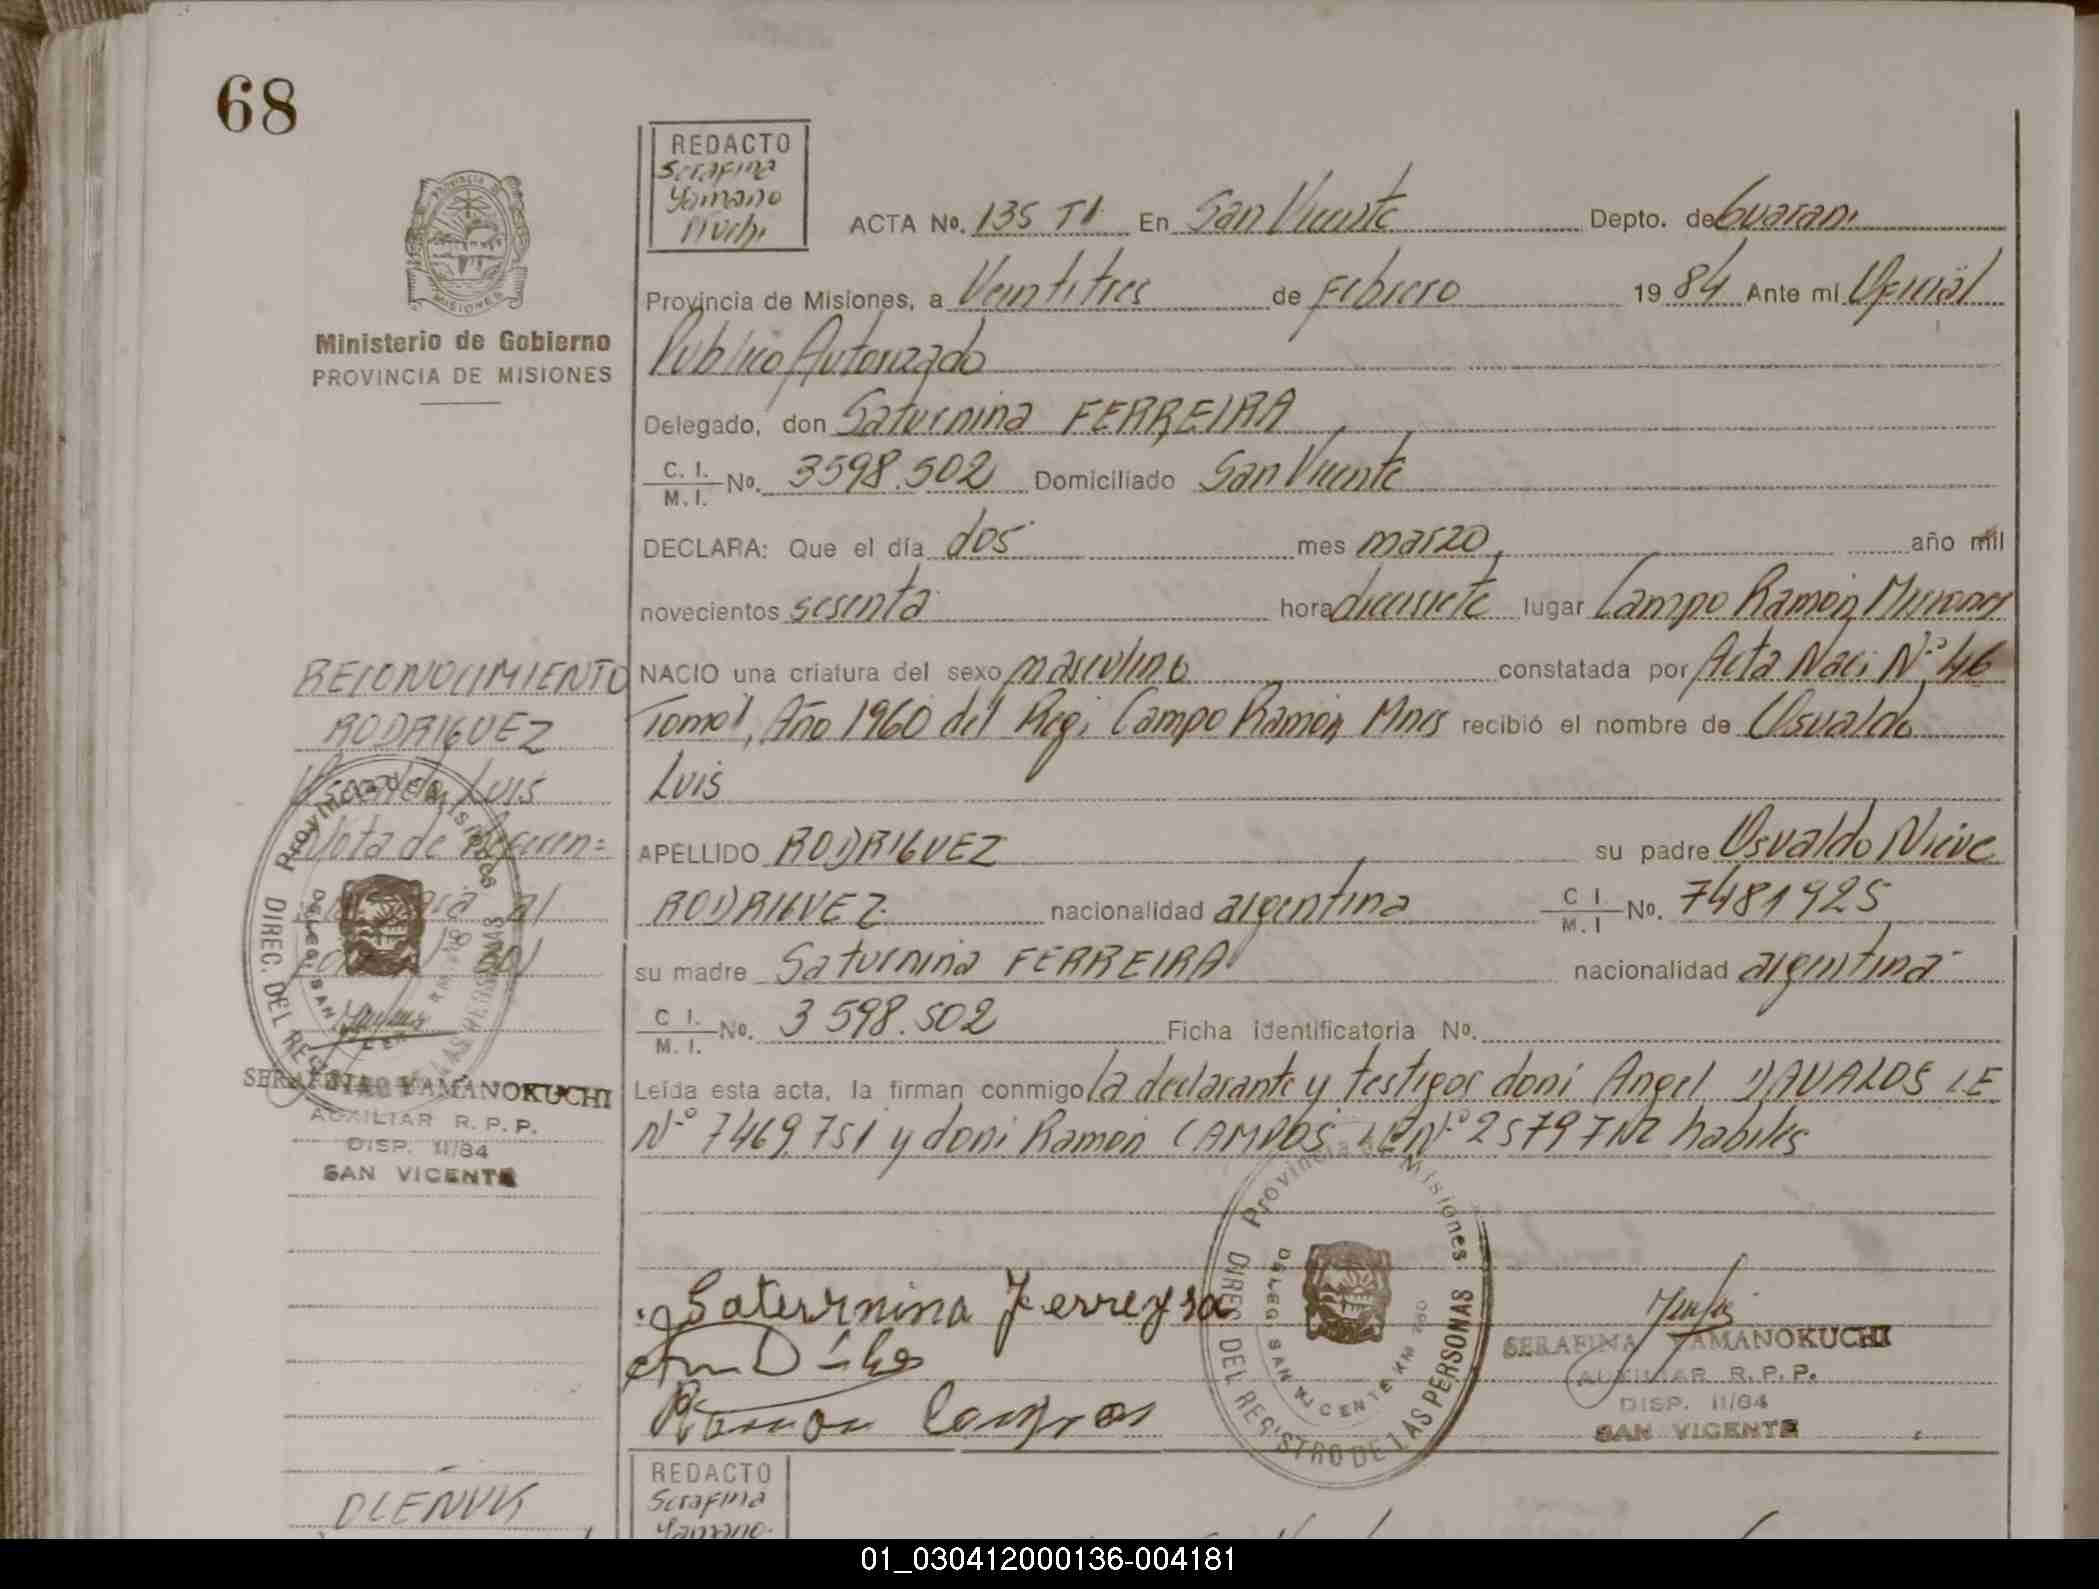 68
REDACTO
Serafina
Yamano
Kuchi
Provincia de
MISIONES
Ministerio de Gobierno
PROVINCIA DE MISIONES
ACTA No. 135 T1 En San Vicente Depto. de Guarani
Provincia de Misiones, a Veintitres de Febrero 1984 Ante mi Oficial
Publico Autorizado
Delegado, don Saturnina FERREIRA
C. I.
M. I. No. 3598.502 Domiciliado San Vicente
DECLARA: Que el día dos mes marzo, año mil
novecientos sesenta hora diecisiete lugar Campo Ramon Misiones
NACIO una criatura del sexo masculino constatada por Acta Naci Nº 46
Tomo 1, Año 1960 del Regi Campo Ramon Mnes recibió el nombre de Osvaldo
Luis
APELLIDO RODRIGUEZ su padre Osvaldo Nieve
RODRIGUEZ nacionalidad argentina C I.
M. I No. 7481925
su madre Saturnina FERREIRA nacionalidad argentina
C I.
M. I. No. 3 598.502 Ficha identificatoria No.
Leída esta acta, la firman conmigo la declarante y testigos doni Angel DAVALOS LE
Nº 7469.751 y doni Ramon CAMPOS LE Nº 2579 habiles
RECONOCIMIENTO
RODRIGUEZ
Osvaldo Luis
Nota de Referen=
al
Provincia de Misiones
DIREC. DEL REGISTRO DE LAS PERSONAS
DELEG. SAN VICENTE KM
SERAFINA YAMANOKUCHI
AUXILIAR R. P. P.
DISP. 11/84
SAN VICENTE
Saternina Ferreyra
Ramon Campos
Provincia de Misiones
DIREC. DEL REGISTRO DE LAS PERSONAS
DELEG. SAN VICENTE KM
SERAFINA YAMANOKUCHI
AUXILIAR R. P. P.
DISP. 11/84
SAN VICENTE
REDACTO
Serafina
Yamano-
01_030412000136-004181